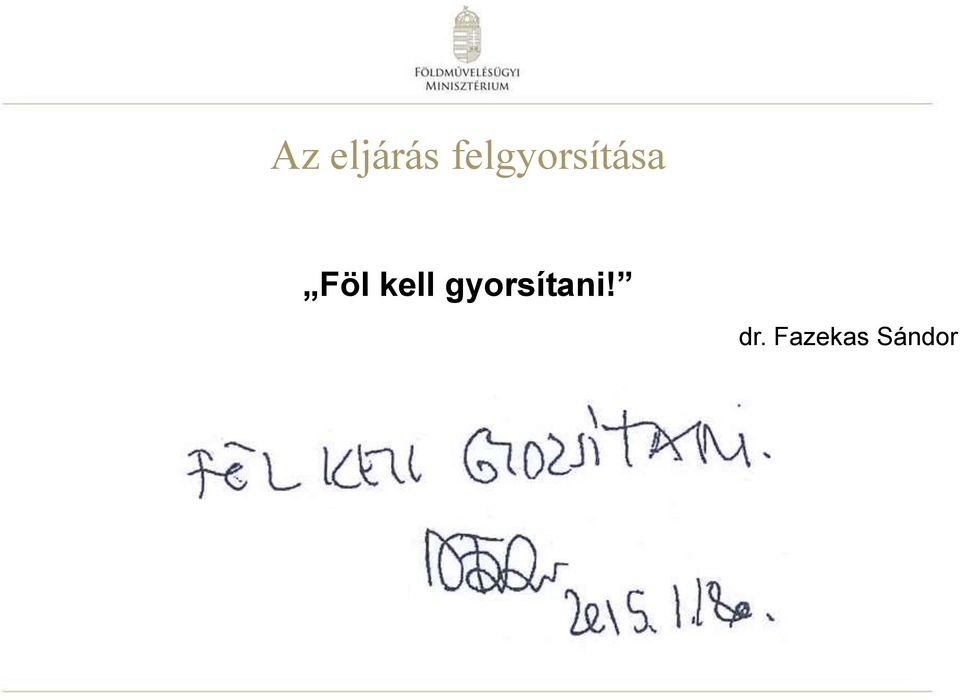 FÖLDMŰVELÉSÜGYI
MINISZTÉRIUM
Az eljárás felgyorsítása
„Föl kell gyorsítani!”
dr. Fazekas Sándor
FÖL KELL GYORSÍTANI.
2015.1.18.